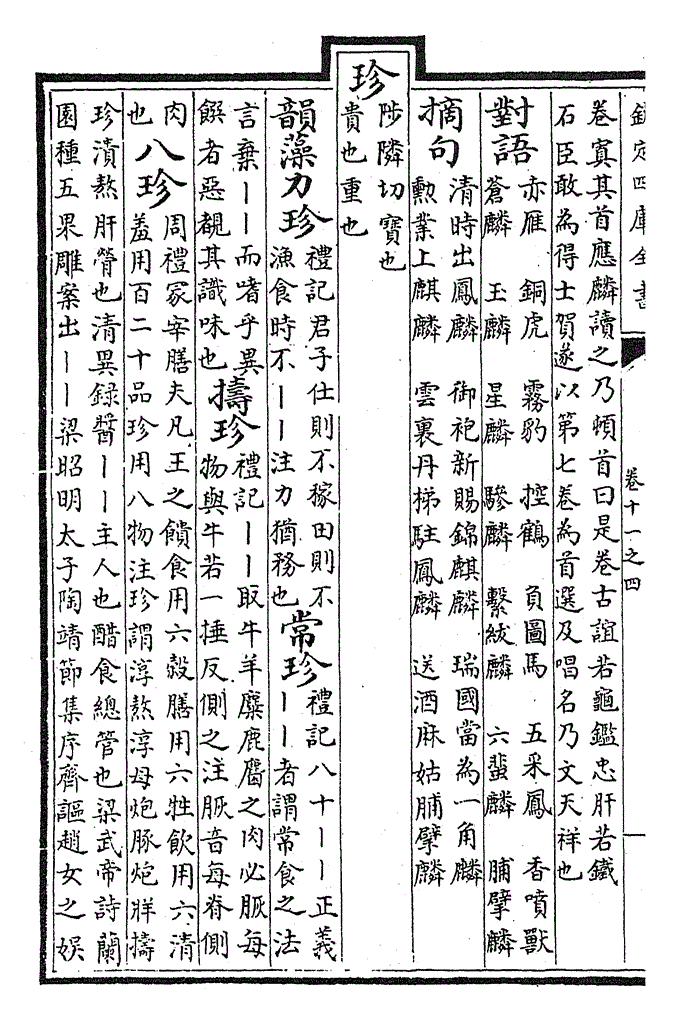 欽定四庫全書 卷十一之四
卷寘其首應麟讀之乃頓首曰是卷古誼若龜鑑忠肝若鐵
石臣敢為得士賀遂以第七卷為首選及唱名乃文天祥也
對語
赤雁 銅虎 霧豹 控鶴 負圖馬 五采鳳 香噴獸
蒼麟 玉麟 星麟 驂麟 繫紱麟 六蜚麟 脯擘麟
摘句
清時出鳳麟 御袍新賜錦麒麟 瑞國當為一角麟
勲業上麒麟 雲裏丹梯駐鳳麟 送酒麻姑脯擘麟
珍
陟隣切寶也
貴也重也
韻藻力珍
禮記君子仕則不稼田則不
漁食時不丨丨注力猶務也
常珍
禮記八十丨丨正義
丨丨者謂常食之法
言棄丨丨而嗜乎異
饌者惡覩其識味也
擣珍
禮記丨丨取牛羊麋鹿麕之肉必脄每
物與牛若一捶反側之注脄音每脊側
肉
也
八珍
周禮冢宰膳夫凡王之饋食用六穀膳用六牲飲用六清
羞用百二十品珍用八物注珍謂淳熬淳母炮豚炮牂擣
珍漬熬肝膋也清異録醬丨丨主人也醋食總管也梁武帝詩蘭
園種五果雕案出丨丨梁昭明太子陶靖節集序齊謳趙女之娛